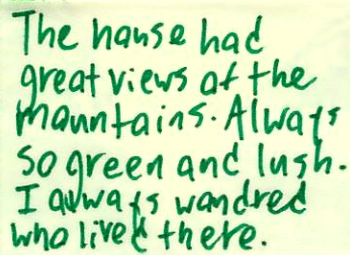 The house had
great views of the
mountains. Always
so green and lush.
I always wondred
who lived there.